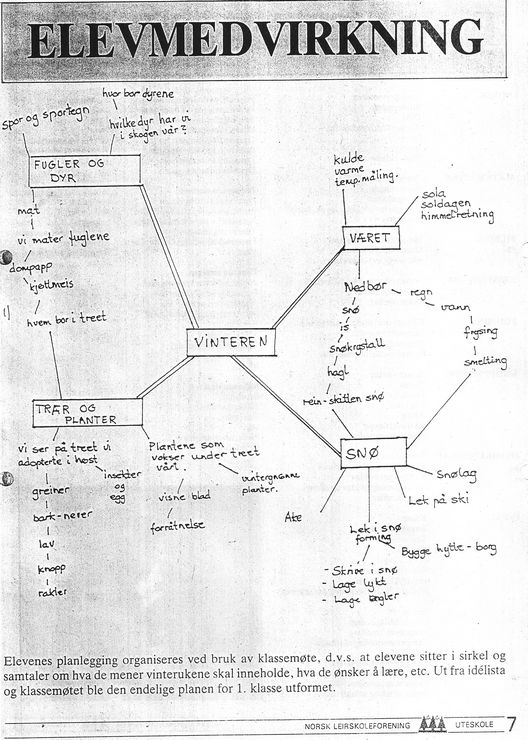 ELEVMEDVIRKNING
hvor bor dyrene
spor og sportegn
hvilke dyr har vi
i skogen vår?
FUGLER OG
DYR
mat
vi mater fuglene
dompapp
kjøttmeis
hvem bor i treet
kulde
varme
temp.måling.
sola
soldagen
himmelretning
VÆRET
Nedbør
regn
vann
frysing
smelting
snø
is
snøkrystall
hagl
rein-skitten snø
VINTEREN
TRÆR OG
PLANTER
vi ser på treet vi
adopterte i høst
insekter
og
egg
greiner
bark-never
lav
knopp
rakler
Plantene som
vokser under treet
vårt.
vintergrønne
planter.
visne blad
forråtnelse
SNØ
Snølag
Lek på ski
Ake
Lek i snø
forming
Bygge hytte - borg
- Skrive i snø
- Lage lykt
- Lage engler
Elevenes planlegging organiseres ved bruk av klassemøte, d.v.s. at elevene sitter i sirkel og
samtaler om hva de mener vinterukene skal inneholde, hva de ønsker å lære, etc. Ut fra idélista
og klassemøtet ble den endelige planen for 1. klasse utformet.
NORSK LEIRSKOLEFORENING UTESKOLE 7